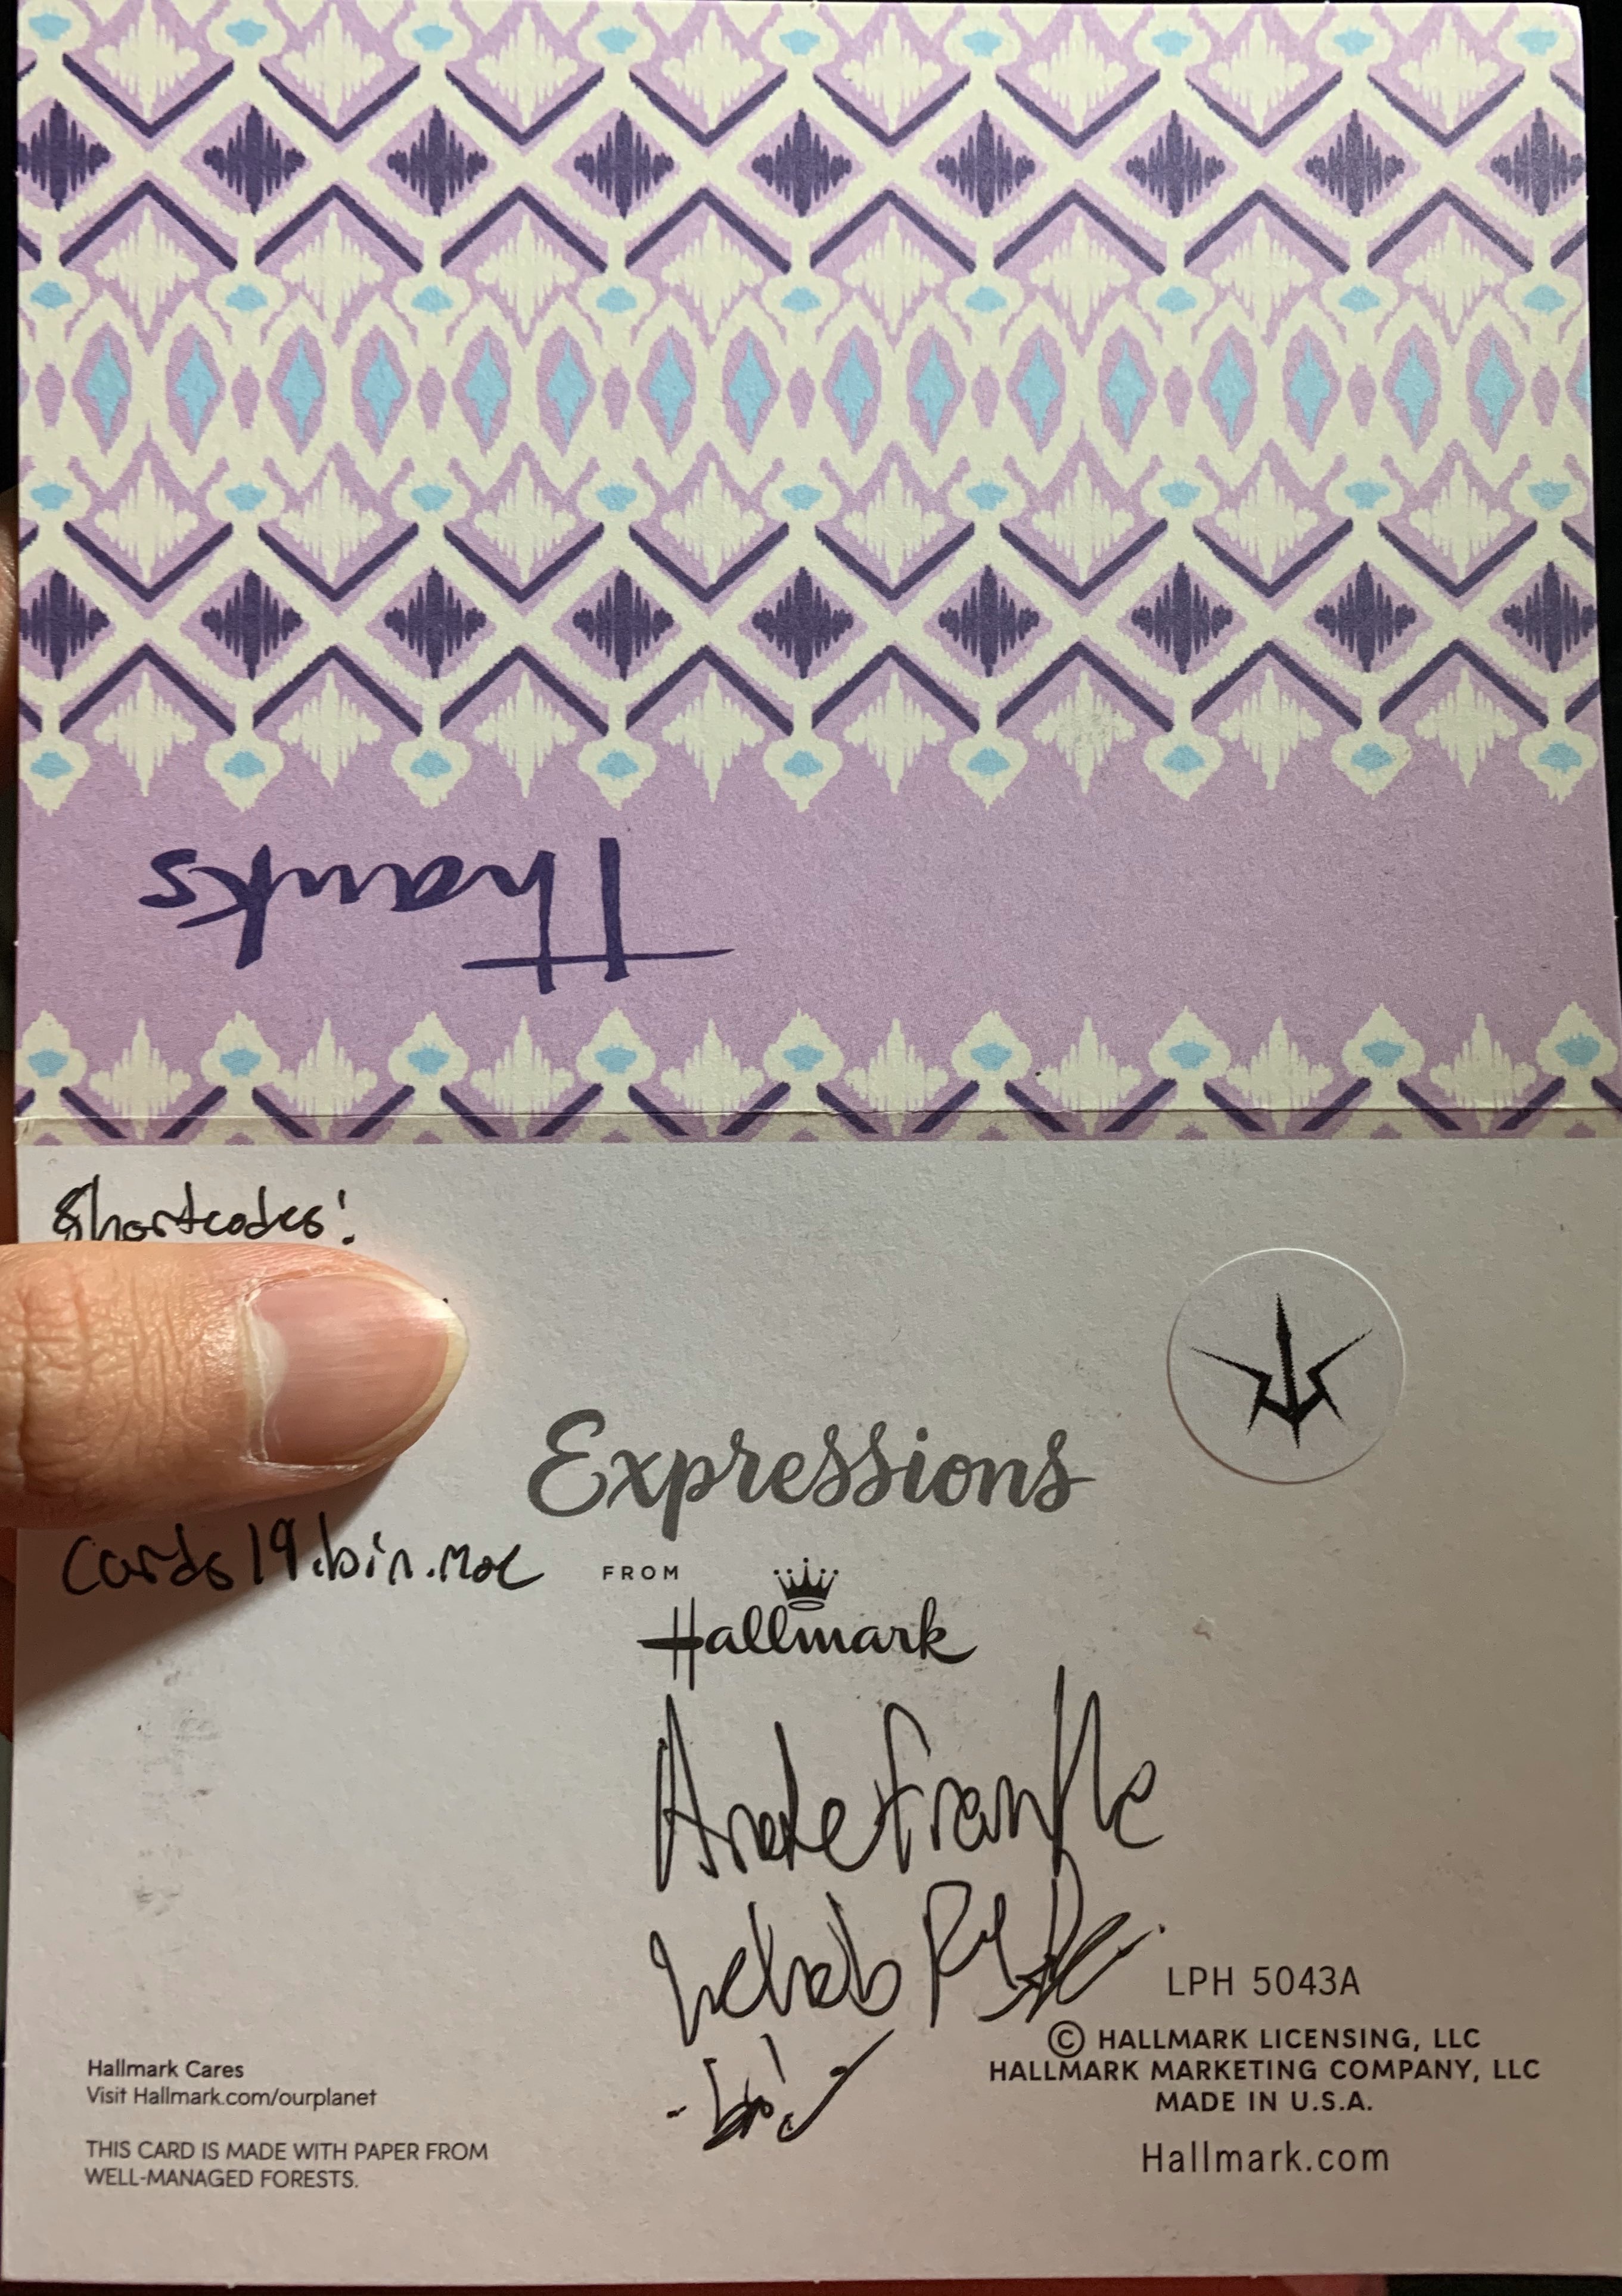 Thanks
Shortcodes:
Expressions
FROM
Hallmark
LPH 5043A
© HALLMARK LICENSING, LLC
HALLMARK MARKETING COMPANY, LLC
MADE IN U.S.A.
Hallmark.com
Hallmark Cares
Visit Hallmark.com/ourplanet
THIS CARD IS MADE WITH PAPER FROM
WELL-MANAGED FORESTS.